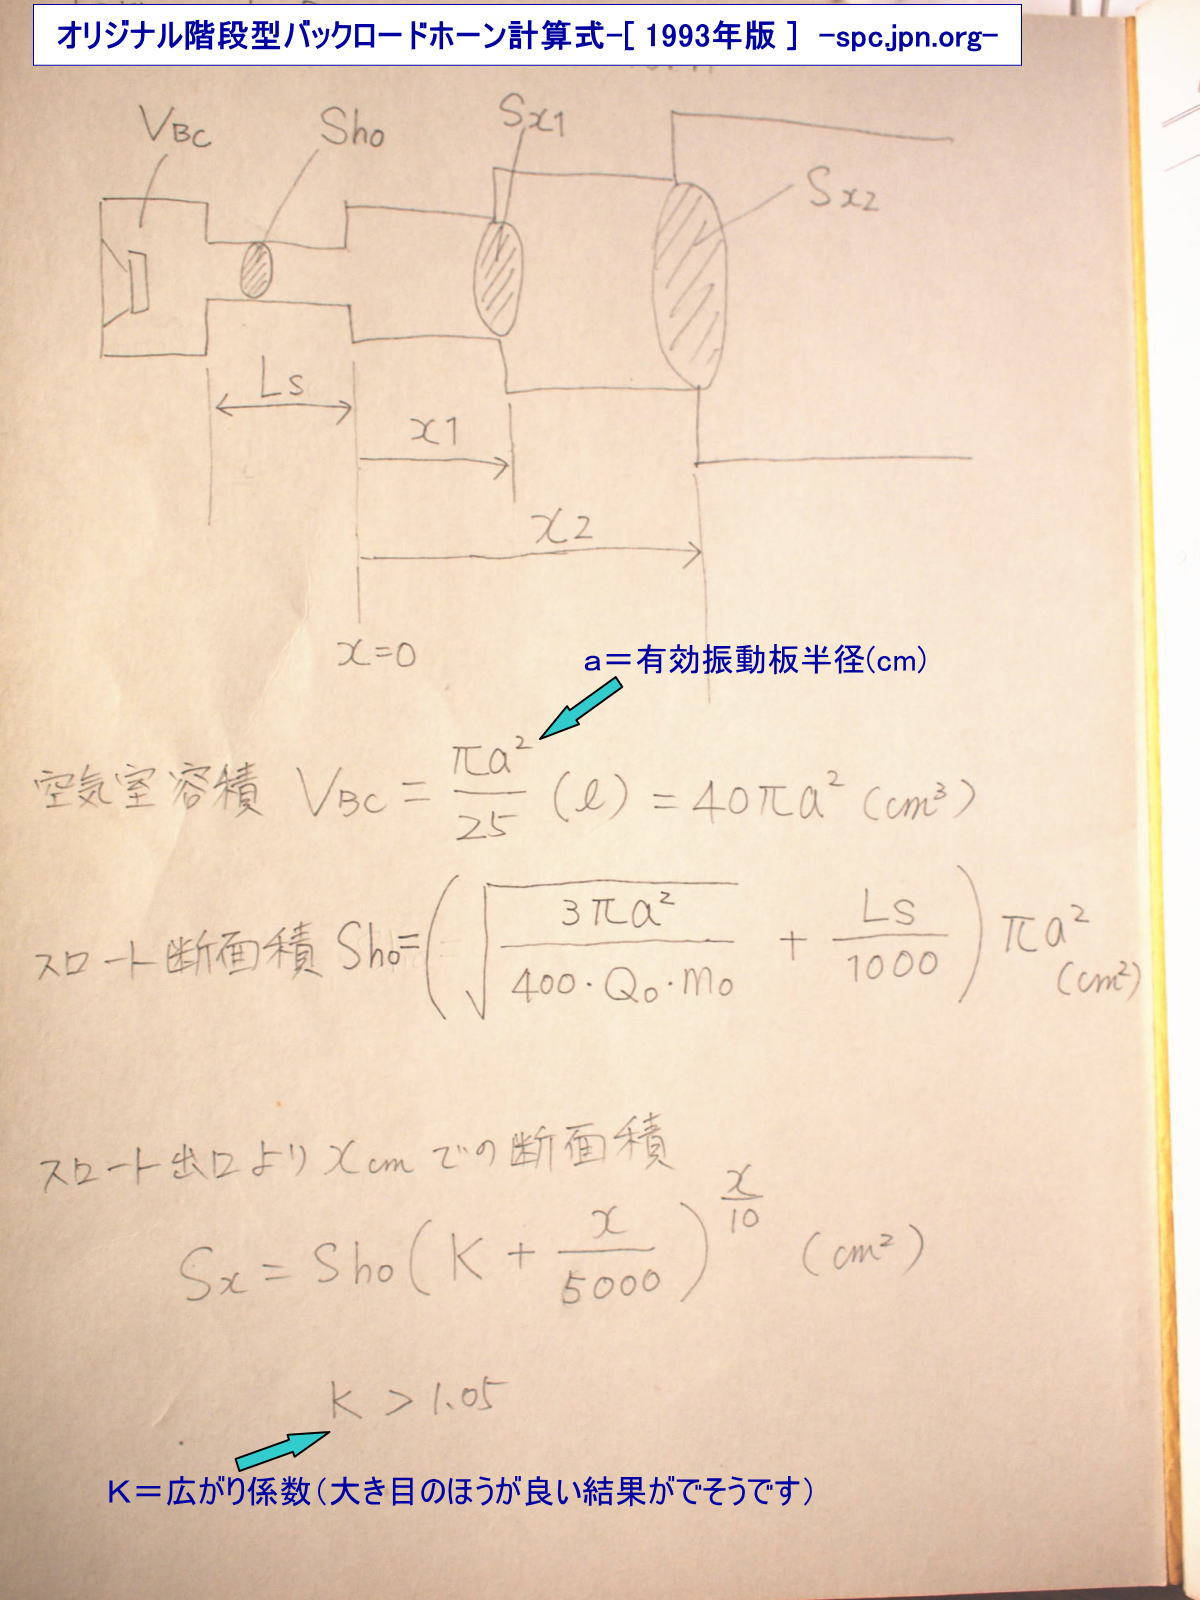 オリジナル階段型バックロードホーン計算式-[ 1993年版 ] -spc.jpn.org-
VBC Sho Sx1 Sx2
Ls
x1
x2
x=0
a=有効振動板半径(cm)
空気室容積 VBC = πa²/25 (ℓ) = 40πa² (cm³)
スロート断面積 Sho = (√(3πa²/(400·Q₀·m₀)) + Ls/1000) πa² (cm²)
スロート出口より xcm での断面積
Sx = Sho (K + x/5000)^(x/10) (cm²)
K > 1.05
K=広がり係数(大き目のほうが良い結果がでそうです)